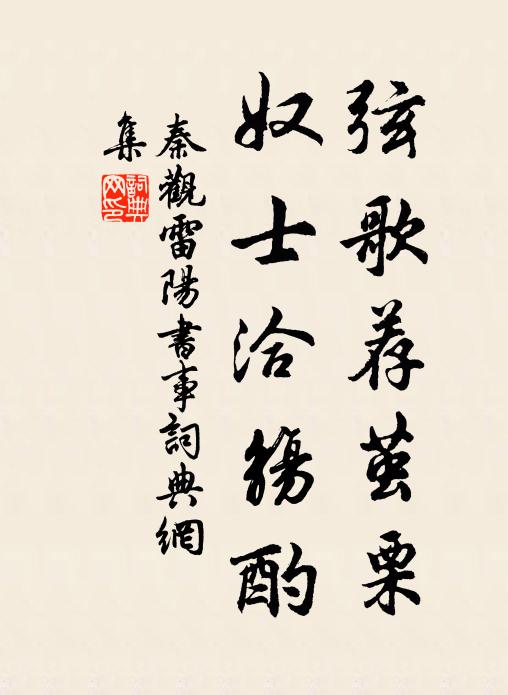 弦歌荐茧栗
奴士洽觞酌
秦觀雷陽書事詞典網
集
詞典網印